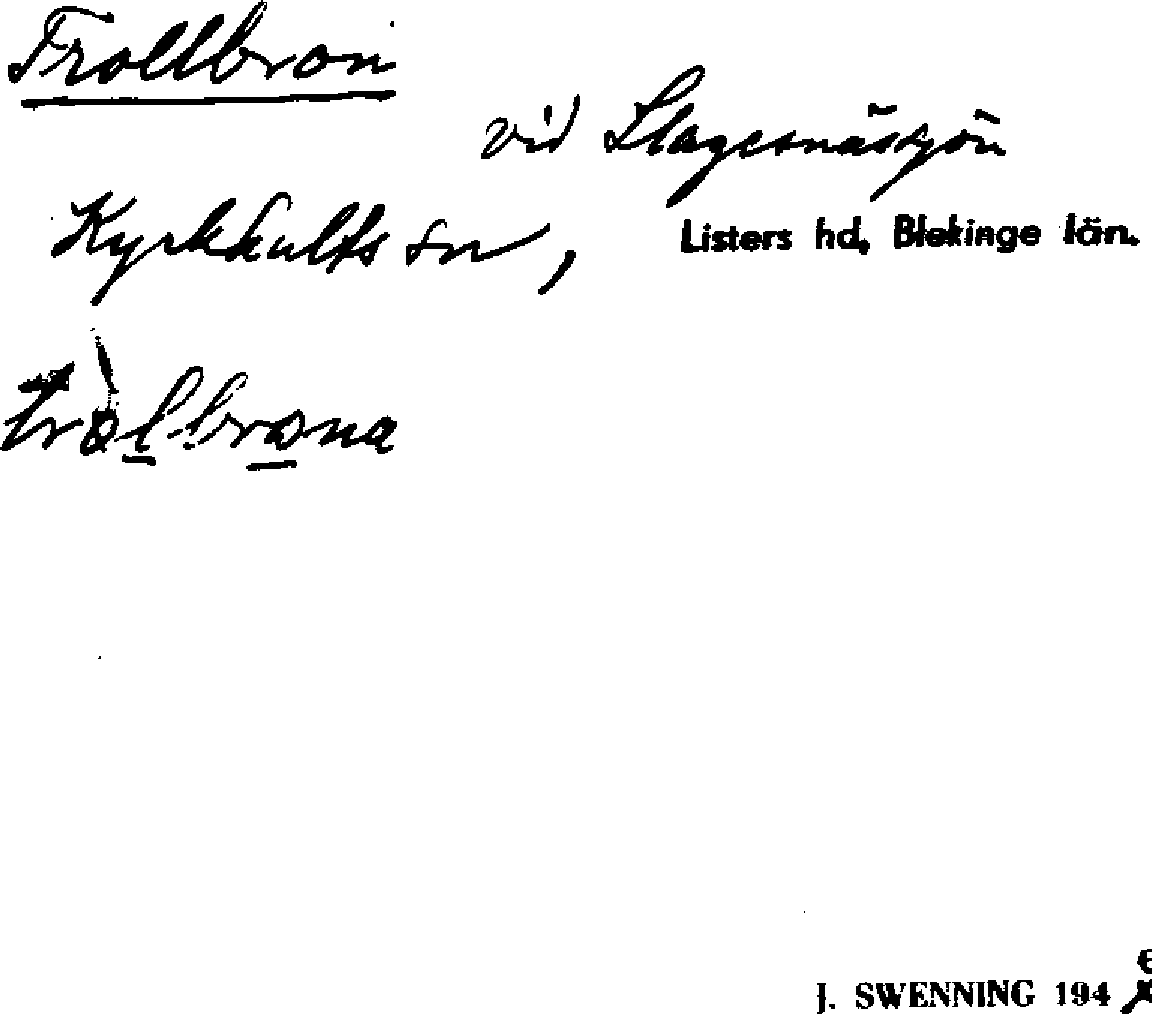 Trollbron
vid Slagesnässjön
Kyrkhults sn, Listers hd, Blekinge län.
tròl-brona
J. SWENNING 194